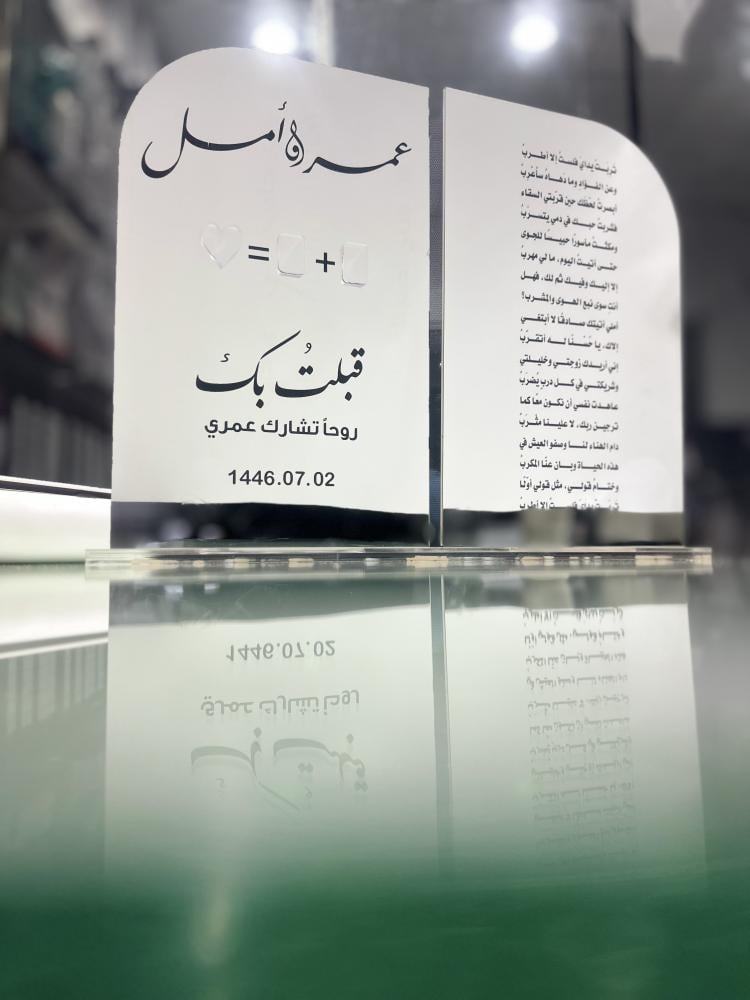 عمر و أمل
+ =
قبلتُ بك
روحاً تشارك عمري
1446.07.02
تربَت يدايَ فلستُ إلا أطربُ
وعن الفؤاد وما دهاهُ سأعربُ
أبصرتُ لحظك حين قرّبتي السقاء
فشربتُ حبك في دمي يتسربُ
ومكثتُ مأسورًا حبيسًا للجوى
حتى أتيتُ اليوم، ما لي مهربُ
إلا إليك وفيك ثم لك، فهل
أنتِ سوى نبع الهوى والمشرب؟
أملي أتيتك صادقًا لا أبتغي
إلاك، يا حُسْنًا له أتقرّبُ
إني أريدك زوجتي وخليلتي
وشريكتي في كل دربٍ يُضرَبُ
عاهدت نفسي أن نكون معًا كما
ترجين ربك، لا علينا مثربُ
دام الهناء لنا وصفو العيش في
هذه الحياة وبان عنّا المكربُ
وختامُ قولي، مثل قولي أوّلًا
تربَت يداي فلستُ إلا أطربُ